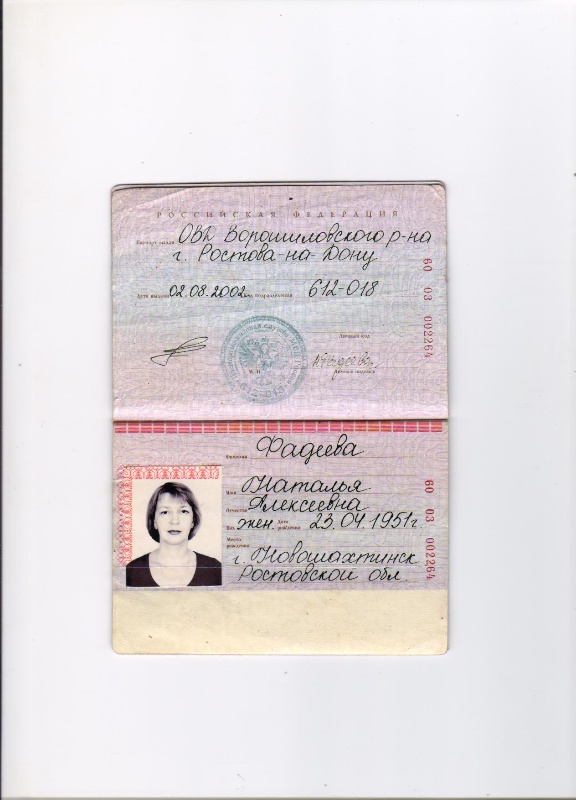 РОССИЙСКАЯ ФЕДЕРАЦИЯ
Паспорт выдан ОВД Ворошиловского р-на
г. Ростова-на-Дону
Дата выдачи 02.08.2002 подразделения 612-018
Личный код
М.П.
Личная подпись
60 03 002264
Фамилия Фадеева
Имя Наталья
Отчество Алексеевна
Пол жен. Дата рождения 23.04.1951г
Место рождения г. Новошахтинск
Ростовской обл
60 03 002264